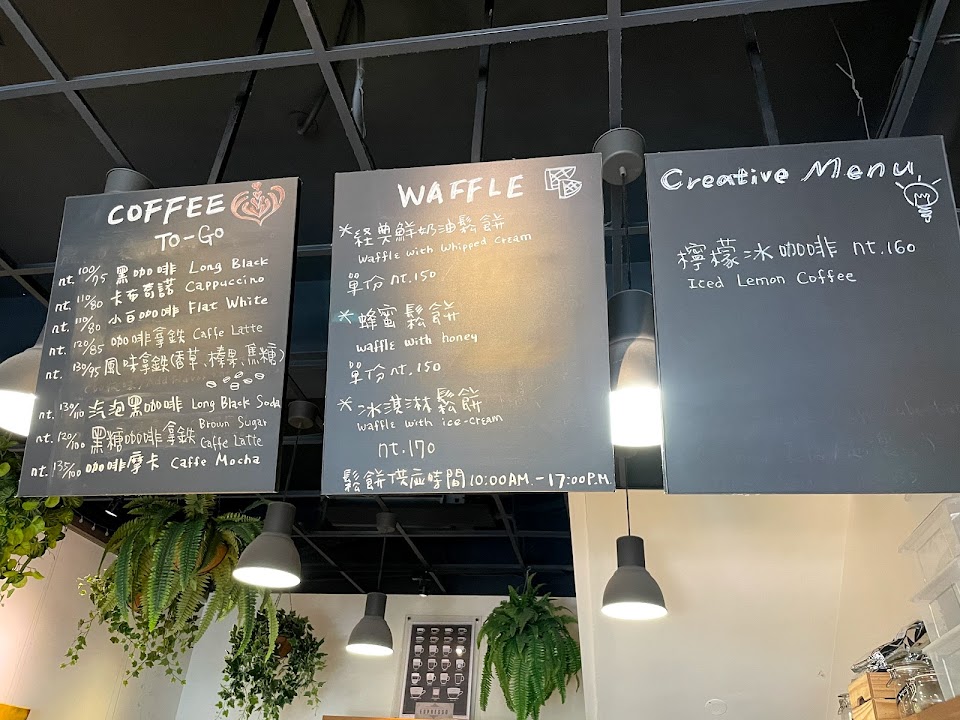 COFFEE
TO-GO
nt. 100/75 黑咖啡 Long Black
nt. 110/80 卡布奇諾 Cappuccino
nt. 110/80 小白咖啡 Flat White
nt. 120/85 咖啡拿鉄 Caffe Latte
nt. 130/95 風味拿鉄(香草、榛果、焦糖)
nt. 130/110 汽泡黑咖啡 Long Black Soda
nt. 120/100 黑糖咖啡拿鉄 Brown Sugar Caffe Latte
nt. 135/100 咖啡摩卡 Caffe Mocha
WAFFLE
*経典鮮奶油鬆餅
Waffle with Whipped Cream
單份 nt.150
*蜂蜜鬆餅
Waffle with honey
單份 nt.150
*冰淇淋鬆餅
Waffle with ice-cream
nt.170
鬆餅供應時間10:00AM.-17:00P.M.
Creative Menu
檸檬冰咖啡 nt.160
Iced Lemon Coffee
ESPRESSO